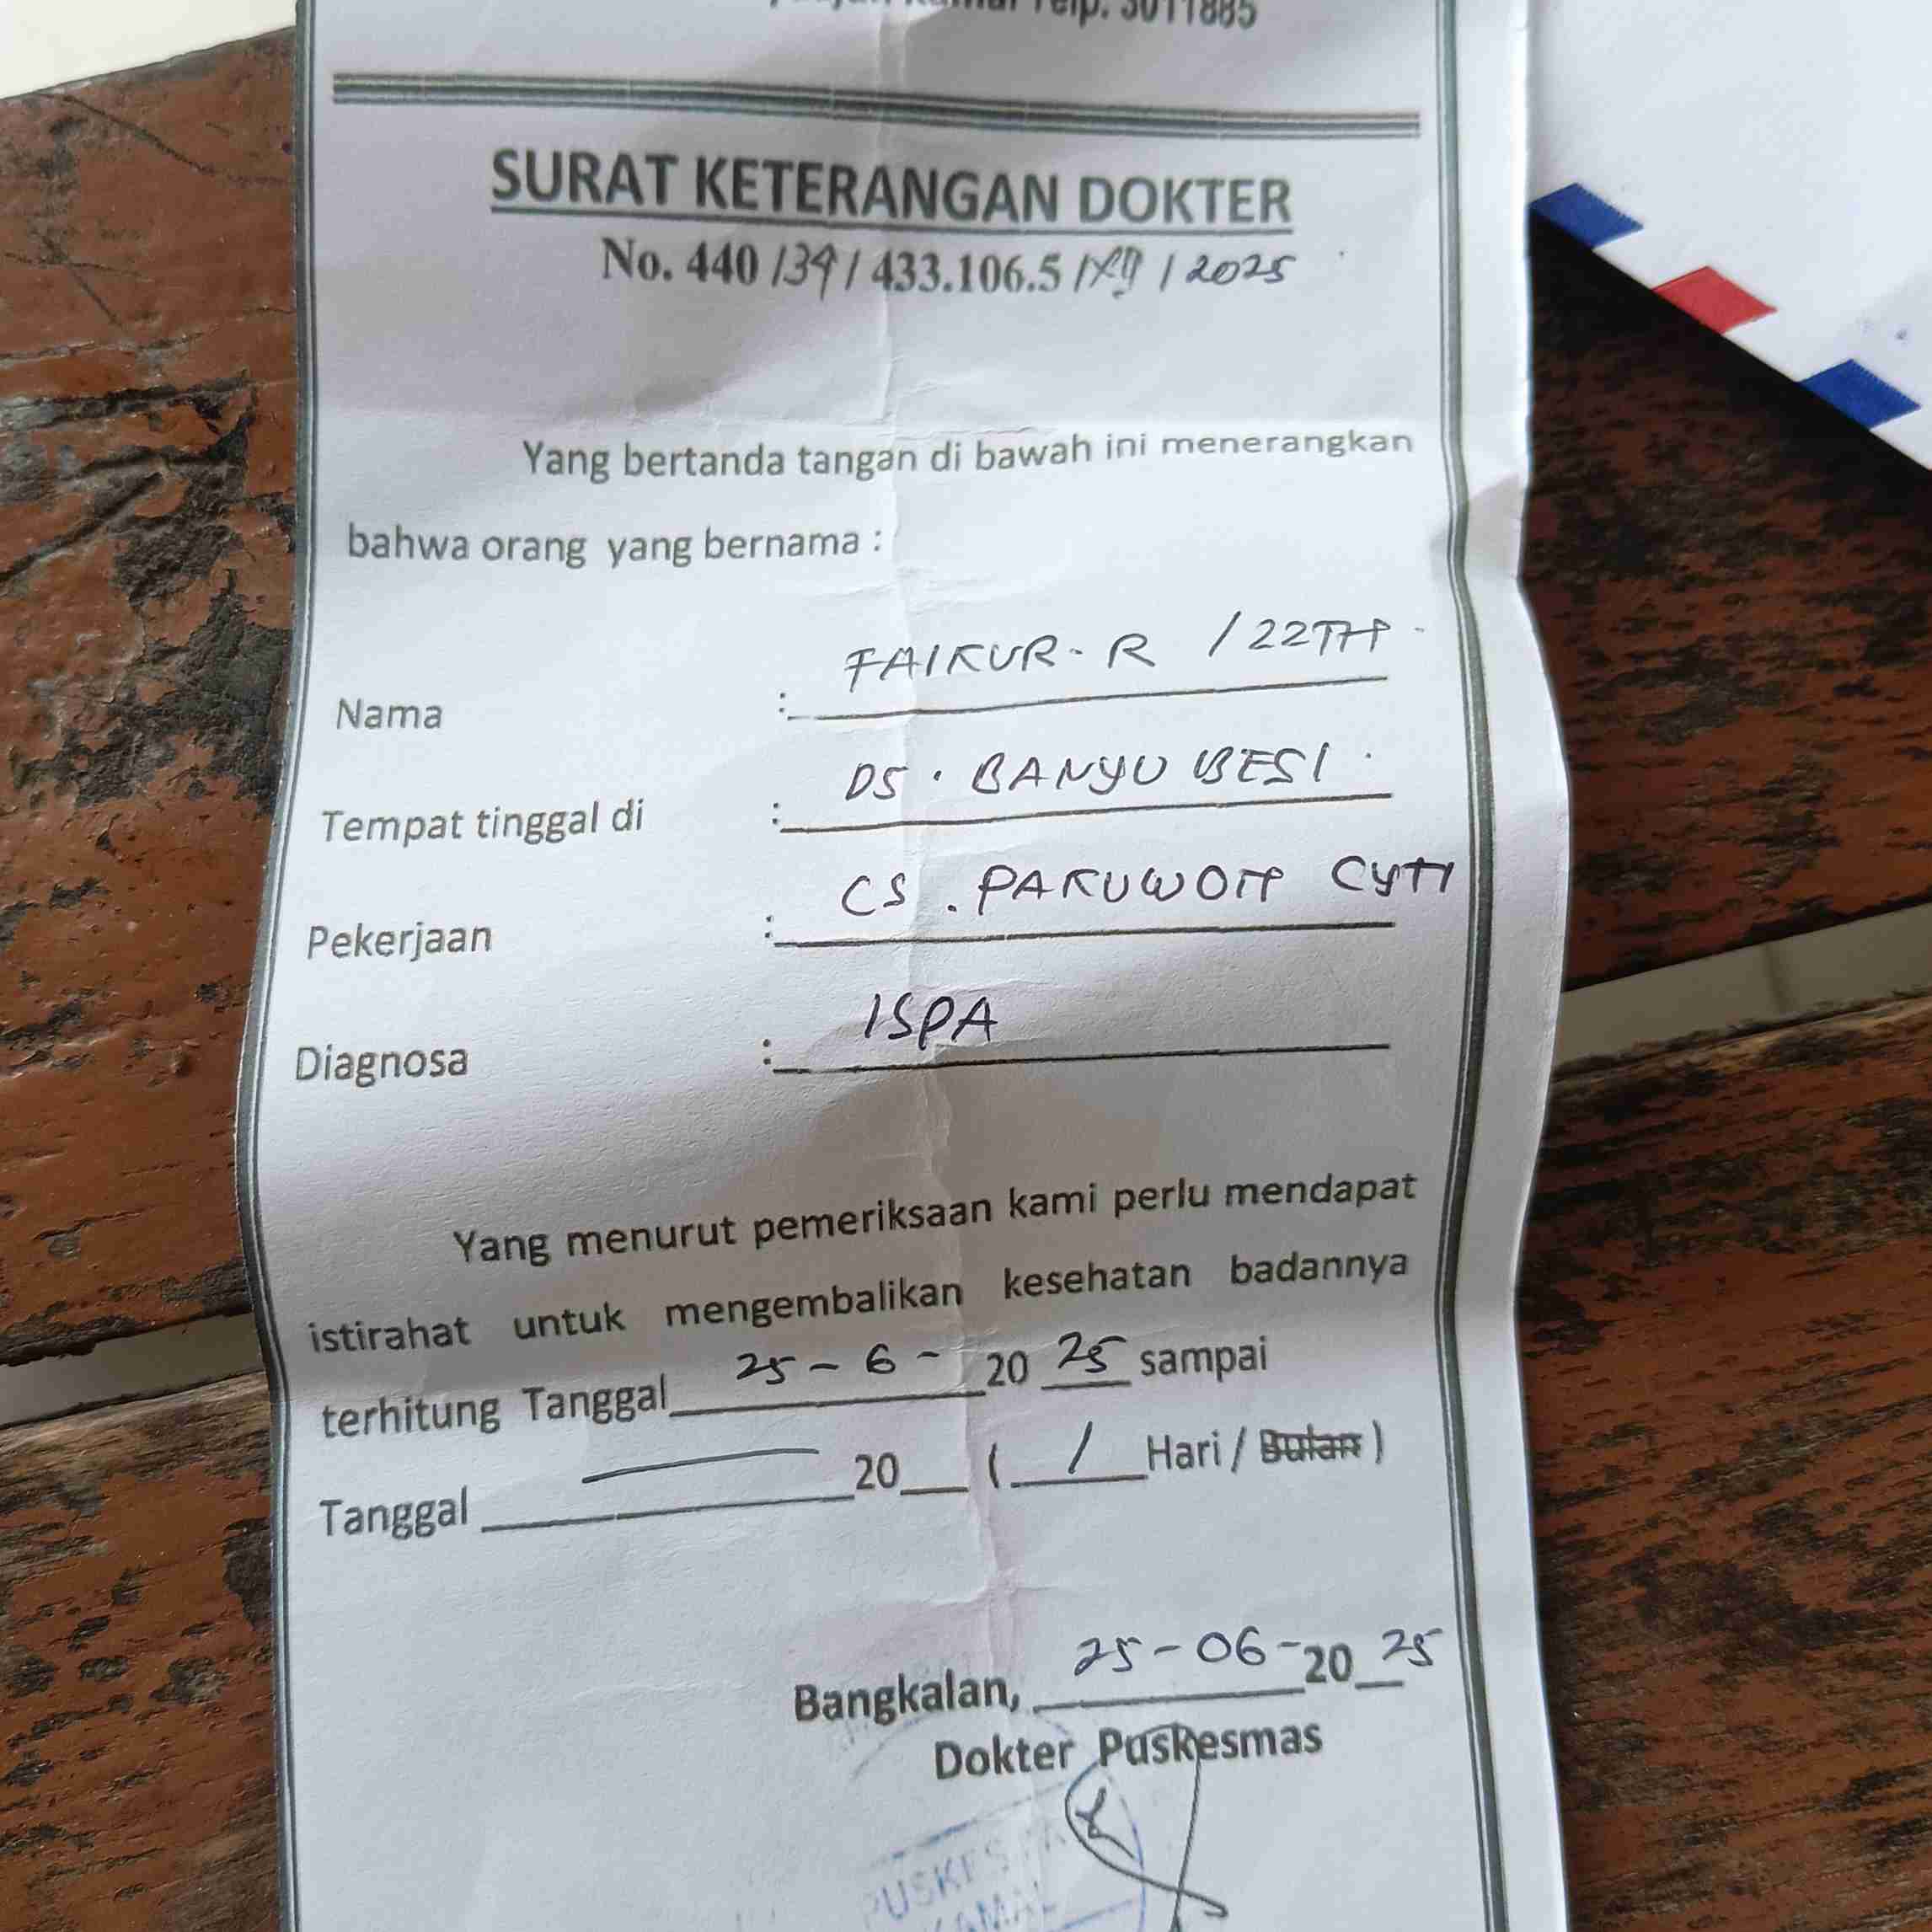 Telp. 3011885
SURAT KETERANGAN DOKTER
No. 440 /39/ 433.106.5 / / 2025
Yang bertanda tangan di bawah ini menerangkan
bahwa orang yang bernama :
Nama : FAIKUR. R / 22TH
Tempat tinggal di : DS. BANYU BESI
Pekerjaan : CS. PAKUWON CYTY
Diagnosa : ISPA
Yang menurut pemeriksaan kami perlu mendapat
istirahat untuk mengembalikan kesehatan badannya
terhitung Tanggal 25 - 6 - 20 25 sampai
Tanggal — 20__ ( 1 Hari / Bulan )
Bangkalan, 25 - 06 - 20 25
Dokter Puskesmas
PUSKESMAS
KAMAL